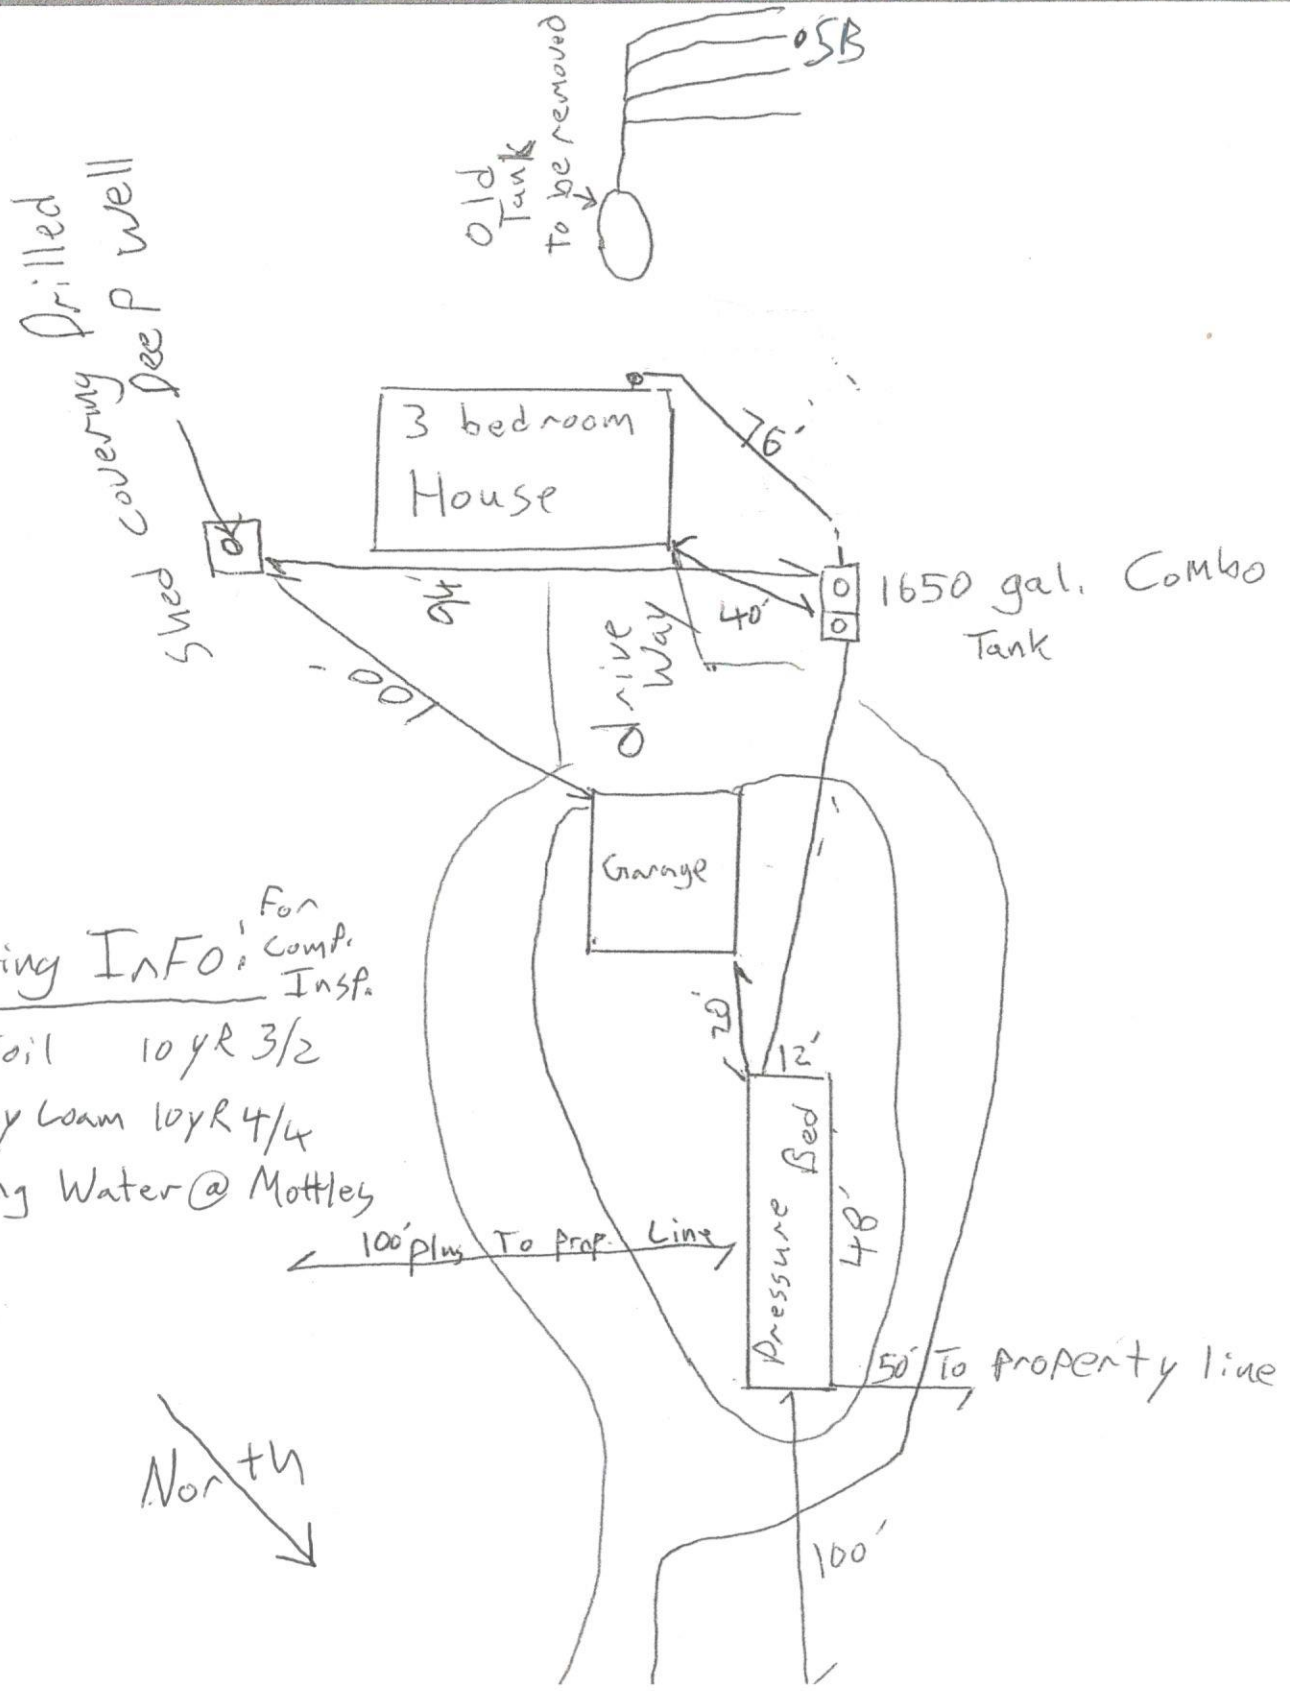 SB
Old
Tank
To be removed
Shed covering Drilled
Deep well
3 bedroom
House
76'
94'
40'
1650 gal. Combo
Tank
drive
way
100'
Garage
ing InFo: For
Comp.
Insp.
oil 10yR 3/2
y Loam 10yR 4/4
ng Water @ Mottles
20'
12'
Pressure Bed
48'
100' plus To prop. Line
50' To property line
North
100'